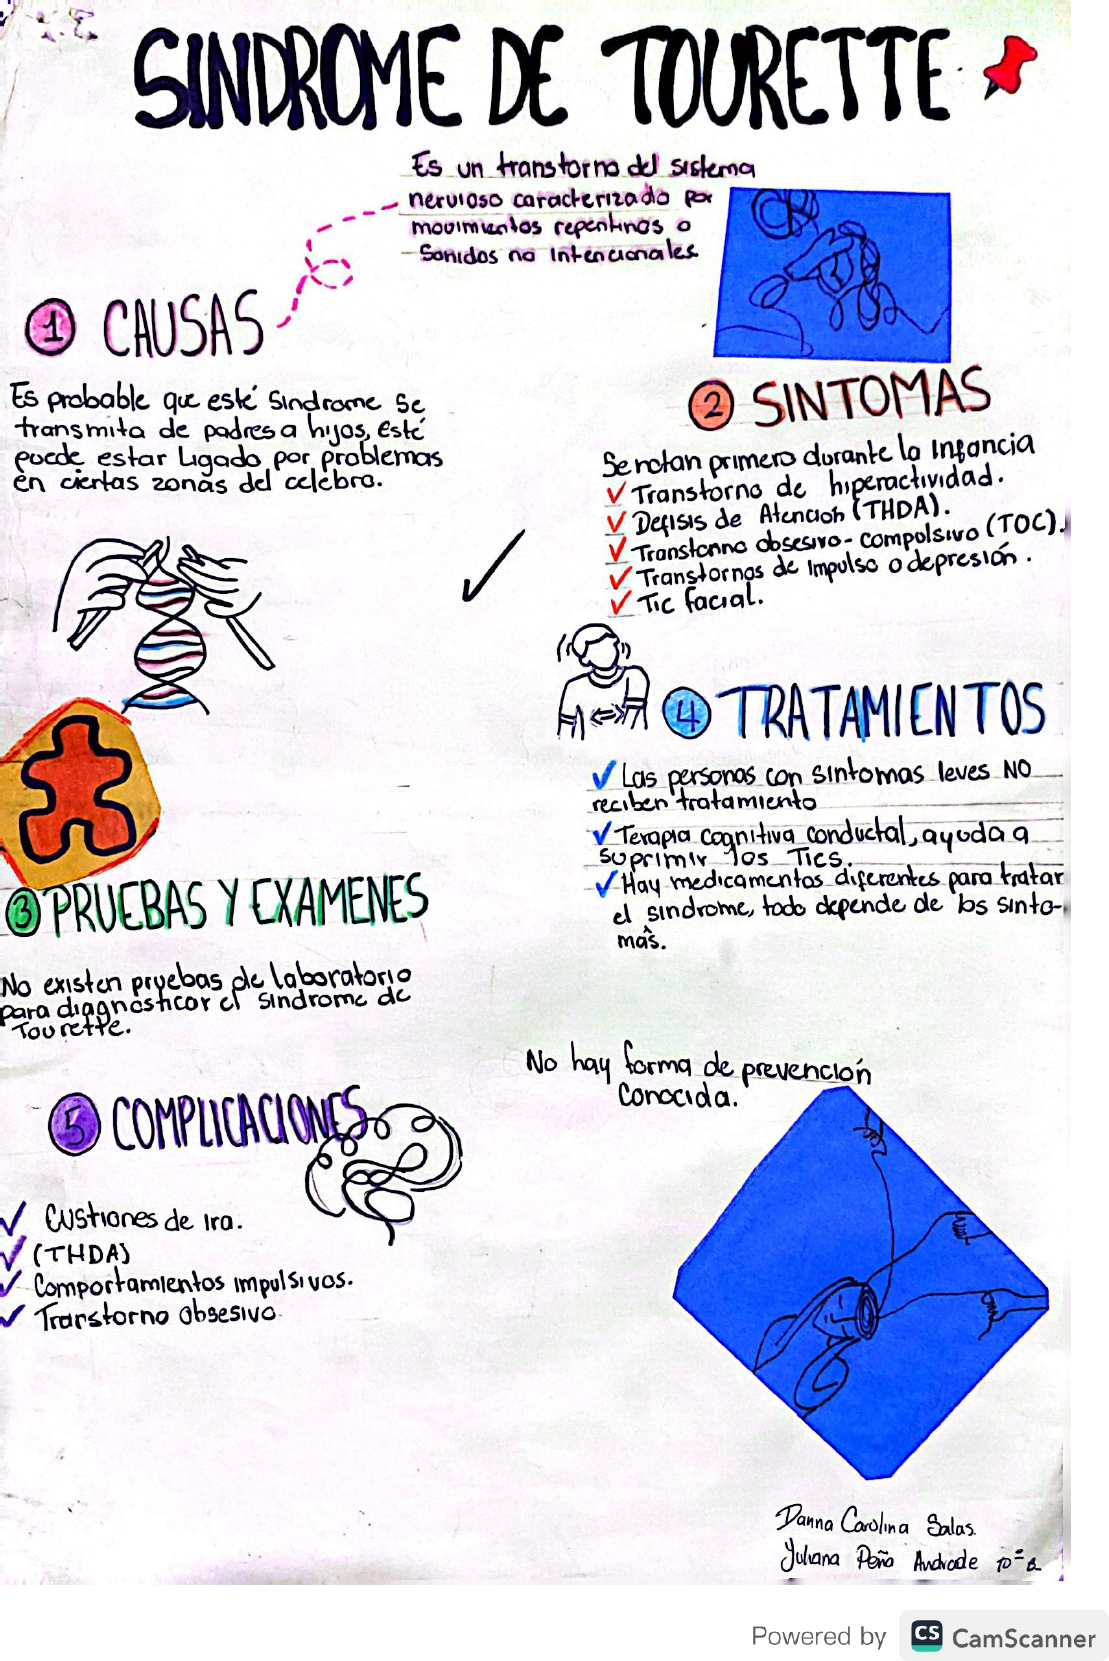 SINDROME DE TOURETTE
Es un transtorno del sistema
nervioso caracterizado por
movimientos repentinos o
Sonidos no intencionales.
1 CAUSAS
Es probable que esté Sindrome Se
transmita de padres a hijos, esté
puede estar Ligado por problemas
en ciertas zonas del celebro.
2 SINTOMAS
Se notan primero durante la Infancia
✓ Transtorno de hiperactividad.
✓ Defisis de Atención (THDA).
✓ Transtorno obsesivo-compulsivo (TOC).
✓ Transtornos de Impulso o depresión.
✓ Tic facial.
3 PRUEBAS Y EXAMENES
No existen pruebas de laboratorio
para diagnosticar el Sindrome de
Tourette.
4 TRATAMIENTOS
✓ Las personas con sintomas leves NO
reciben tratamiento
✓ Terapia cognitiva conductal, ayuda a
suprimir los Tics.
✓ Hay medicamentos diferentes para tratar
el sindrome, todo depende de los sinto-
mas.
No hay forma de prevención
Conocida.
5 COMPLICACIONES
✓ Custiones de Ira.
✓ (THDA)
✓ Comportamientos impulsivos.
✓ Transtorno obsesivo.
Danna Carolina Salas.
Juliana Peña Andrade 10=B
Powered by CS CamScanner